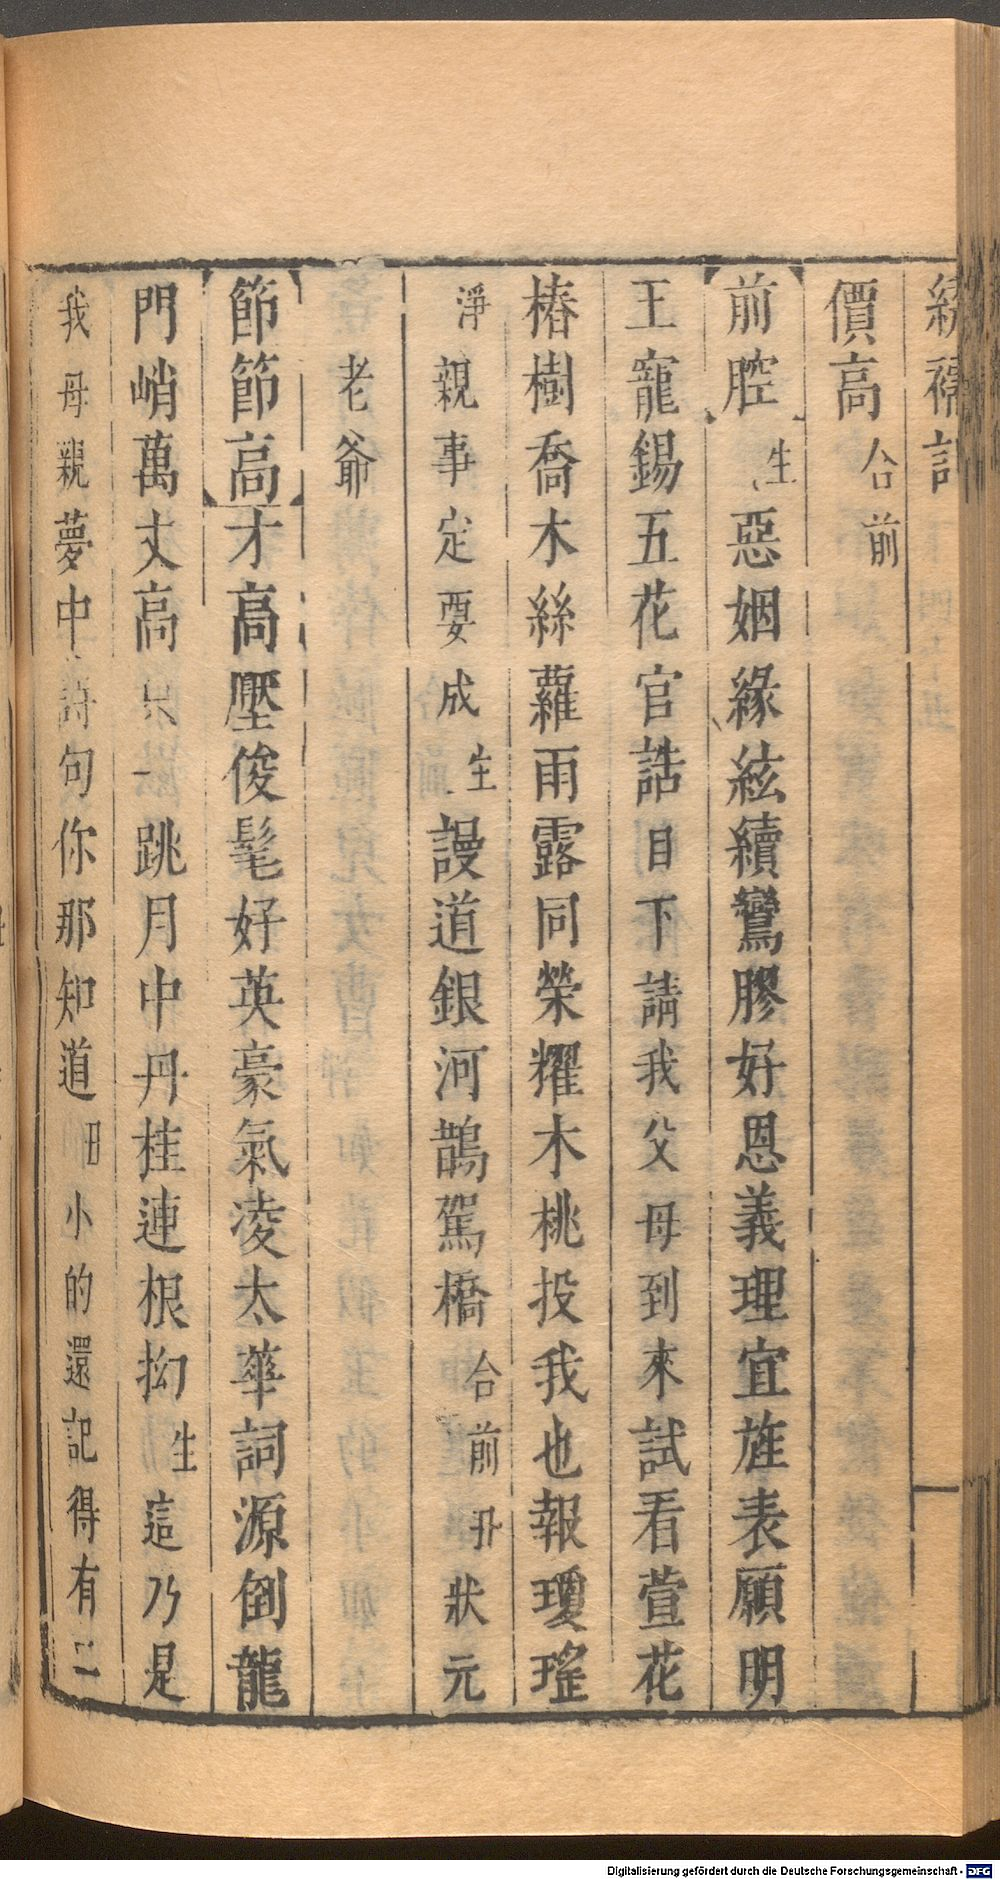 繡襦記
價高合前
前腔生惡姻緣絃續鸞膠好恩義理宜旌表願明
王寵錫五花官誥目下請我父母到來試看萱花
椿樹喬木絲蘿雨露同榮耀木桃投我也報瓊瑤
淨親事定要成生謾道銀河鵲駕橋合前丑狀元
老爺
節節高才高壓俊髦好英豪氣凌太華詞源倒龍
門峭萬丈高只一跳月中丹桂連根拗生這乃是
我母親夢中詩句你那知道田小的還記得有二
Digitalisierung gefördert durch die Deutsche Forschungsgemeinschaft - DFG